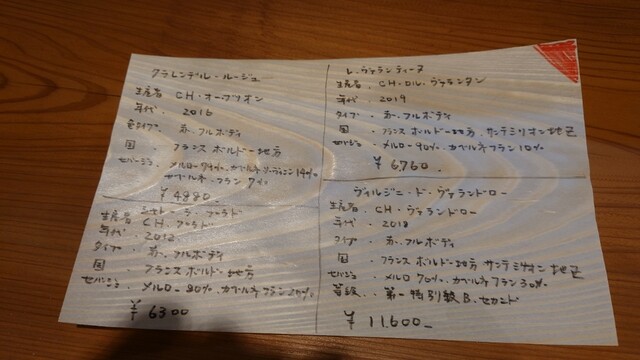 クラレンドル・ルージュ
生産者 CH・オーブリオン
年代 2016
タイプ 赤、フルボディ
国 フランス ボルドー地方
セパージュ メルロー79%、カベルネ・ソーヴィニヨン14%
カベルネ・フラン 7%
¥4980
レ・ヴァランティーヌ
生産者 CH・ロル・ヴァランタン
年代 2019
タイプ 赤、フルボディ
国 フランス ボルドー地方、サンテミリオン地区
セパージュ メルロー90%、カベルネフラン10%
¥6,760
シャトー・ラ・プラド
生産者 CH プラド
年代 2012
タイプ 赤、フルボディ
国 フランスボルドー地方
セパージュ メルロー80%、カベルネフラン20%
¥6300
ヴィルジニ・ド・ヴァランドロー
生産者 CH・ヴァランドロー
年代 2018
タイプ 赤、フルボディ
国 フランスボルドー地方 サンテミリオン地区
セパージュ メルロ70%、カベルネフラン30%
等級 第一特別級B、セカンド
¥11,600